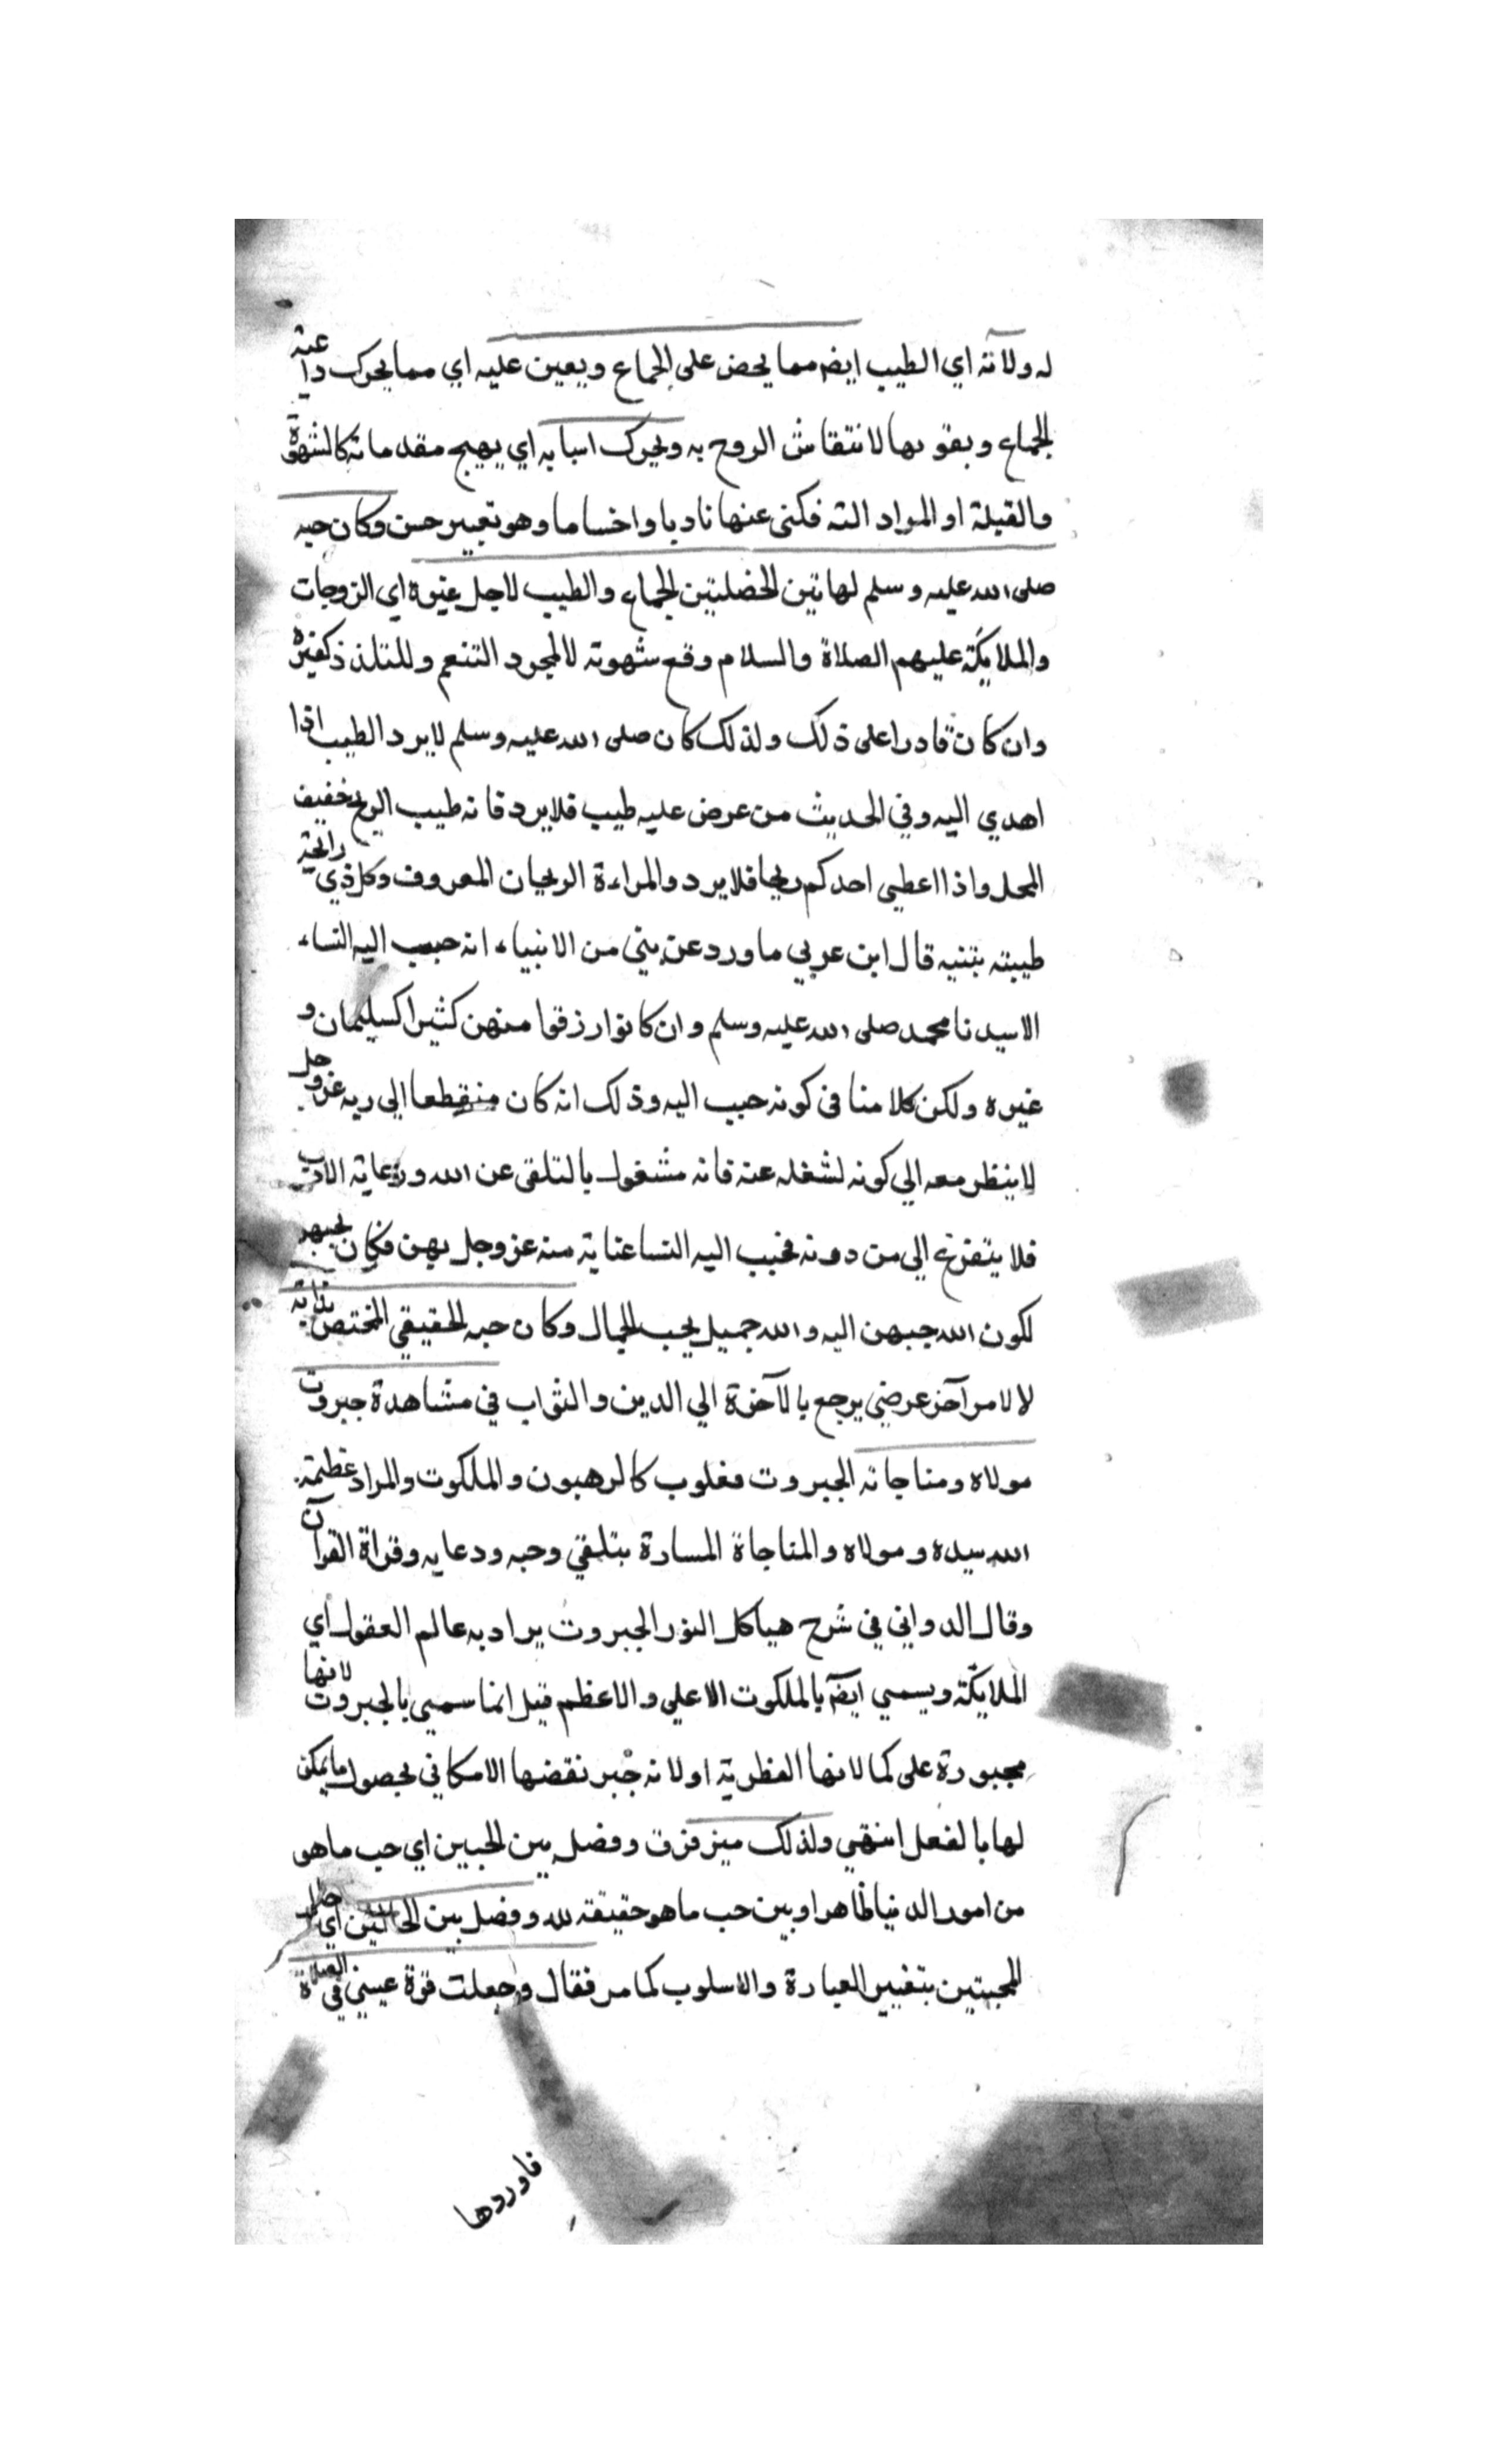 له ولانه اي الطيب ايضا مما يحض على الجماع ويعين عليه اي مما يحرك داعية
الجماع ويقويها لانتقاش الروح به ويحرك اسبابه اي يهيج مقدماته كالشهوة
والقبلة او المواد التـه فكنى عنها تاديا واحتساما وهو تعبير حسن وكان حبه
صلى الله عليه وسلم لهاتين الخصلتين الجماع والطيب لاجل غيره اي الزوجات
والملايكة عليهم الصلاة والسلام وقع شهوته لالمجرد التنعم وللتلذذ كغيره
وان كان قادرا على ذلك ولذلك كان صلى الله عليه وسلم لايرد الطيب اذا
اهدي اليه وفي الحديث من عرض عليه طيب فلايرد فانه طيب الريح خفيف
المحل واذا اعطي احدكم ريحا فلايرد والمراءة الريحان المعروف وكل ذي رائحة
طيبته بتنبيه قال ابن عربي ما ورد عن نبي من الانبياء انه حبب اليه النساء
الاسيدنا محمد صلى الله عليه وسلم وان كانوا رزقوا منهن كثيرا كسليمان و
غيره ولكن كلامنا في كونه حبب اليه وذلك انه كان منقطعا الى ربه عز وجل
لاينظر معه الي كونه لشغله عنه فانه مشغول بالتلقى عن الله ورعاية الادب
فلا يتفرغ الى من دونه فحبب اليه النسا عناية منه عز وجل بهن فكان يحبهن
لكون الله حببهن اليه والله جميل يحب الجمال وكان حبه الحقيقي المختص بذاته
لا لامر آخر عرضي يرجع بالآخرة الي الدين والثواب في مشاهدة جبروت
مولاه ومناجاته الجبروت مغلوب كالرهبون والملكوت والمراد عظمة
الله سيده ومولاه والمناجاة المسارة بتلقي وحيه ودعايه وقراة القرآن
وقال الدواني في شرح هياكل النور الجبروت يراد به عالم العقول اي
الملايكة ويسمي ايضا بالملكوت الاعلي والاعظم قيل انما سمي بالجبروت لانها
مجبورة على كمالاتها الفطرية او لانه جبر نقضها الامكاني بحصول مايمكن
لها بالفعل انتهي ولذلك ميز فرت وفضل بين الحبين اي حب ماهو
من امور الدنيا ظاهرا وبين حب ماهو حقيقته لله وفضل بين الحالتين اي
المحبتين بتغيير العبارة والاسلوب كما مر فقال وجعلت قرة عيني في الصلاة
فاوردها